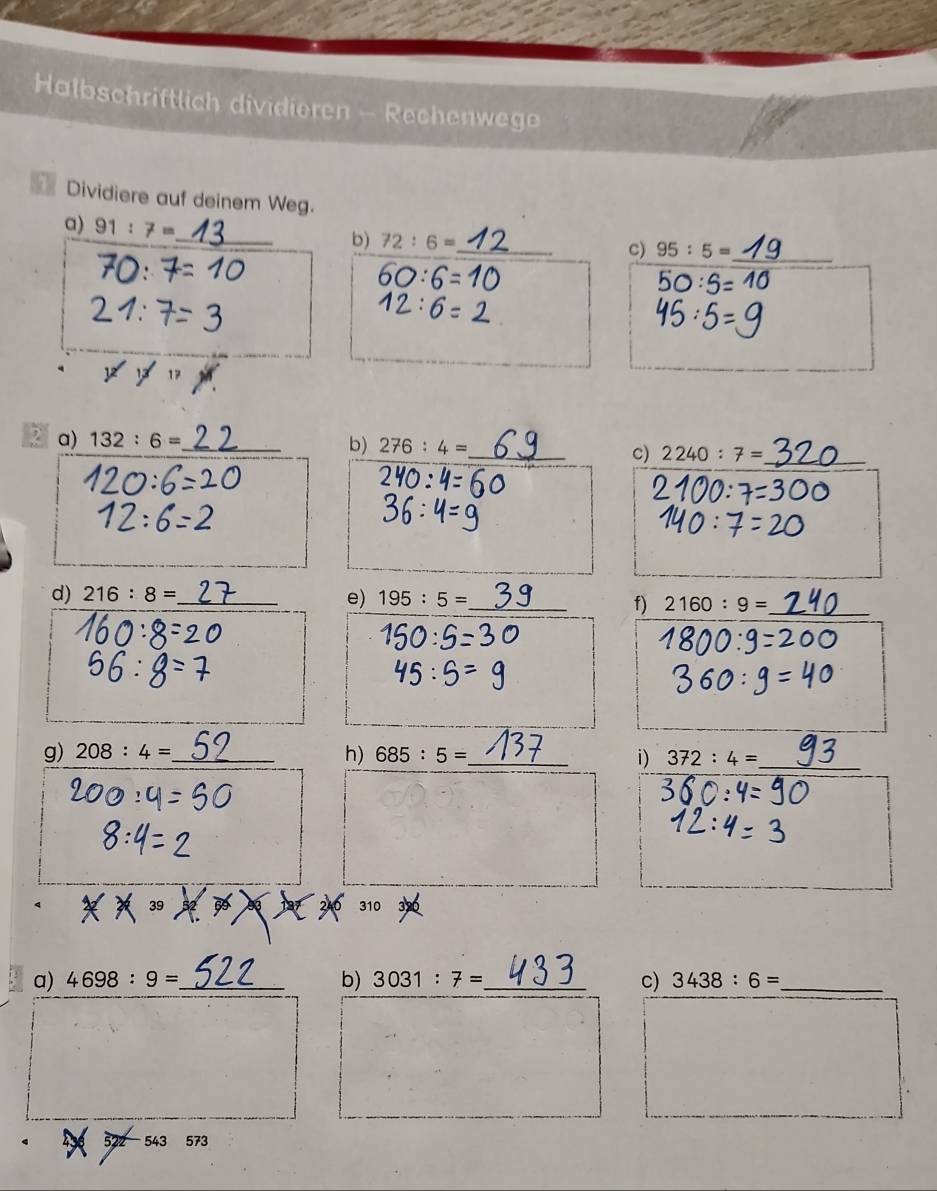 Halbschriftlich dividieren – Rechenwege
1 Dividiere auf deinem Weg.
a) 91 : 7 = 13
70 : 7 = 10
21 : 7 = 3
b) 72 : 6 = 12
60 : 6 = 10
12 : 6 = 2
c) 95 : 5 = 19
50 : 5 = 10
45 : 5 = 9
12 13 17
2 a) 132 : 6 = 22
120 : 6 = 20
12 : 6 = 2
b) 276 : 4 = 69
240 : 4 = 60
36 : 4 = 9
c) 2240 : 7 = 320
2100 : 7 = 300
140 : 7 = 20
d) 216 : 8 = 27
160 : 8 = 20
56 : 8 = 7
e) 195 : 5 = 39
150 : 5 = 30
45 : 5 = 9
f) 2160 : 9 = 240
1800 : 9 = 200
360 : 9 = 40
g) 208 : 4 = 52
200 : 4 = 50
8 : 4 = 2
h) 685 : 5 = 137
i) 372 : 4 = 93
360 : 4 = 90
12 : 4 = 3
22 27 39 52 69 93 137 240 310 320
a) 4698 : 9 = 522
b) 3031 : 7 = 433
c) 3438 : 6 =
433 522 543 573